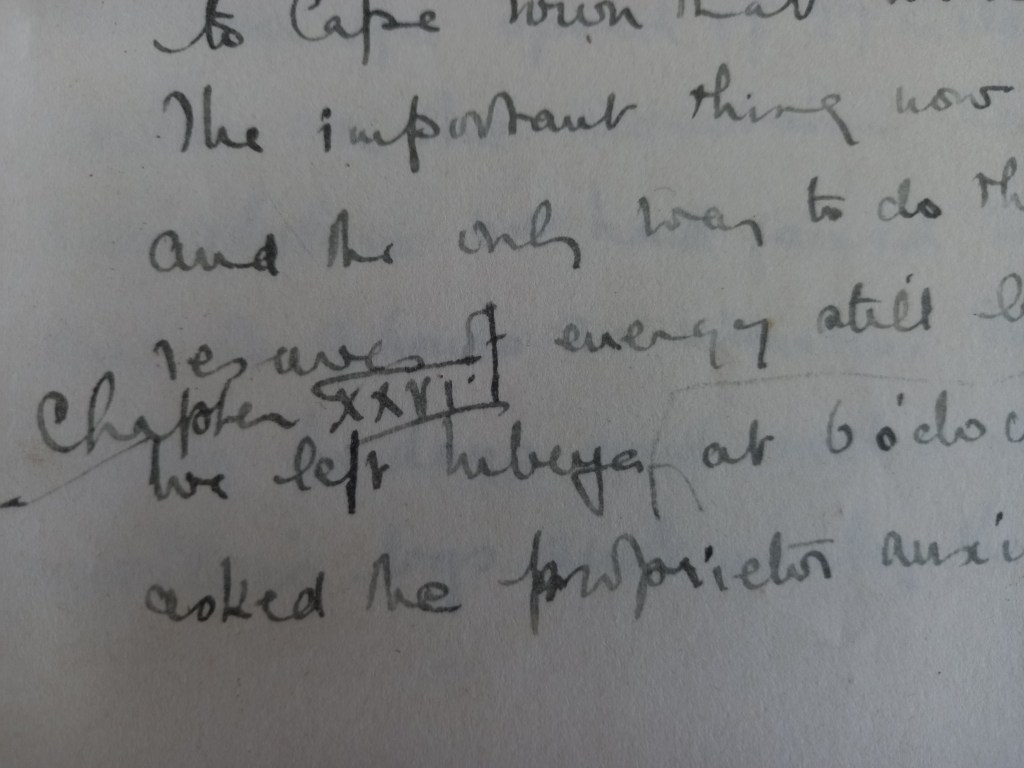 to Cape Town that
The important thing now
and the only way to do th
reserves of energy still
Chapter XXVI.
we left Mbeya at 6 o'cloc
asked the proprietor anxi